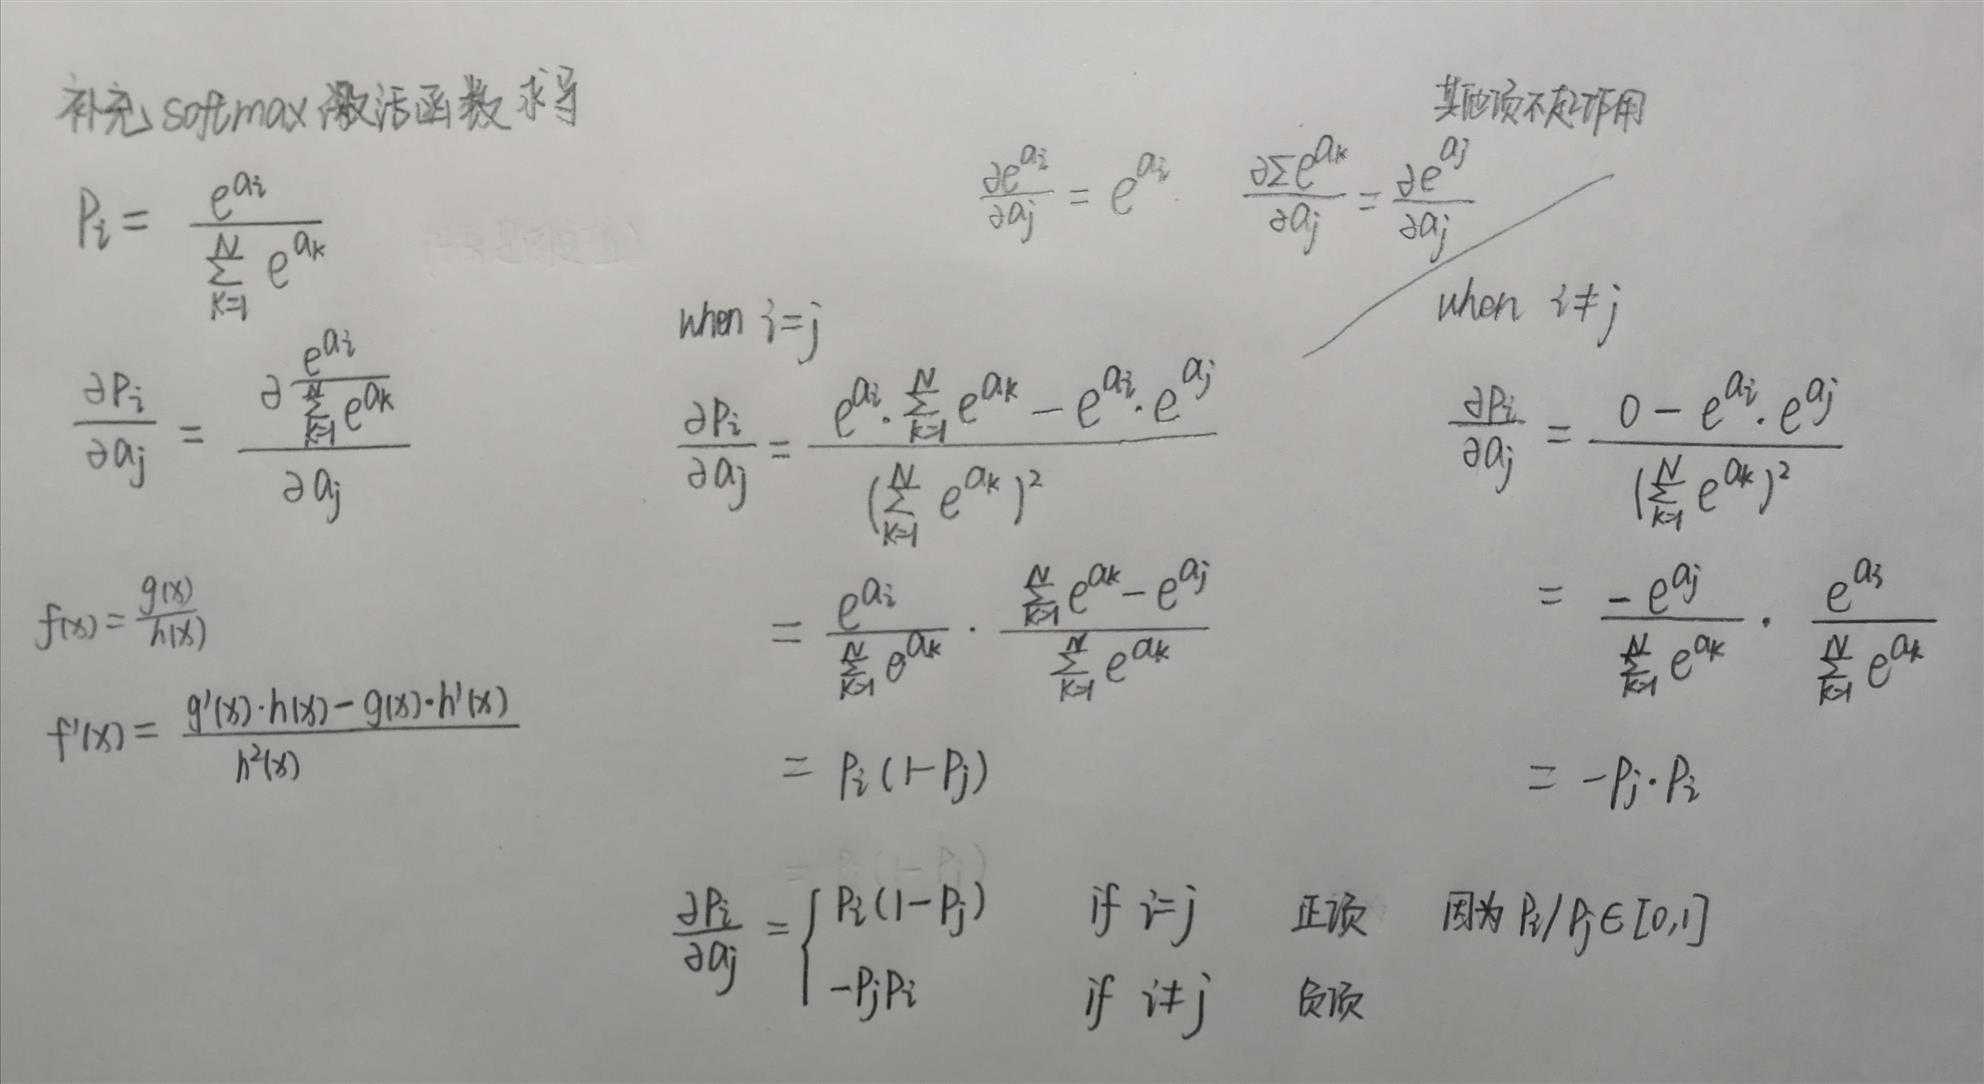 补充 softmax 激活函数求导
P_i = \frac{e^{a_i}}{\sum_{k=1}^{N} e^{a_k}}
\frac{∂P_i}{∂a_j} = \frac{∂ \frac{e^{a_i}}{\sum_{k=1}^{N} e^{a_k}}}{∂a_j}
f(x) = \frac{g(x)}{h(x)}
f'(x) = \frac{g'(x)·h(x) - g(x)·h'(x)}{h^2(x)}
其他项不起作用
\frac{∂e^{a_i}}{∂a_j} = e^{a_i}. \frac{∂\sum e^{a_k}}{∂a_j} = \frac{∂e^{a_j}}{∂a_j}
when i=j
\frac{∂P_i}{∂a_j} = \frac{e^{a_i}·\sum_{k=1}^{N} e^{a_k} - e^{a_i}·e^{a_j}}{(\sum_{k=1}^{N} e^{a_k})^2}
= \frac{e^{a_i}}{\sum_{k=1}^{N} e^{a_k}} · \frac{\sum_{k=1}^{N} e^{a_k} - e^{a_j}}{\sum_{k=1}^{N} e^{a_k}}
= P_i(1-P_j)
when i≠j
\frac{∂P_i}{∂a_j} = \frac{0 - e^{a_i}·e^{a_j}}{(\sum_{k=1}^{N} e^{a_k})^2}
= \frac{-e^{a_j}}{\sum_{k=1}^{N} e^{a_k}} · \frac{e^{a_i}}{\sum_{k=1}^{N} e^{a_k}}
= -P_j·P_i
\frac{∂P_i}{∂a_j} = { P_i(1-P_j) if i=j 正项 因为 P_i/P_j∈[0,1]
-P_jP_i if i≠j 负项